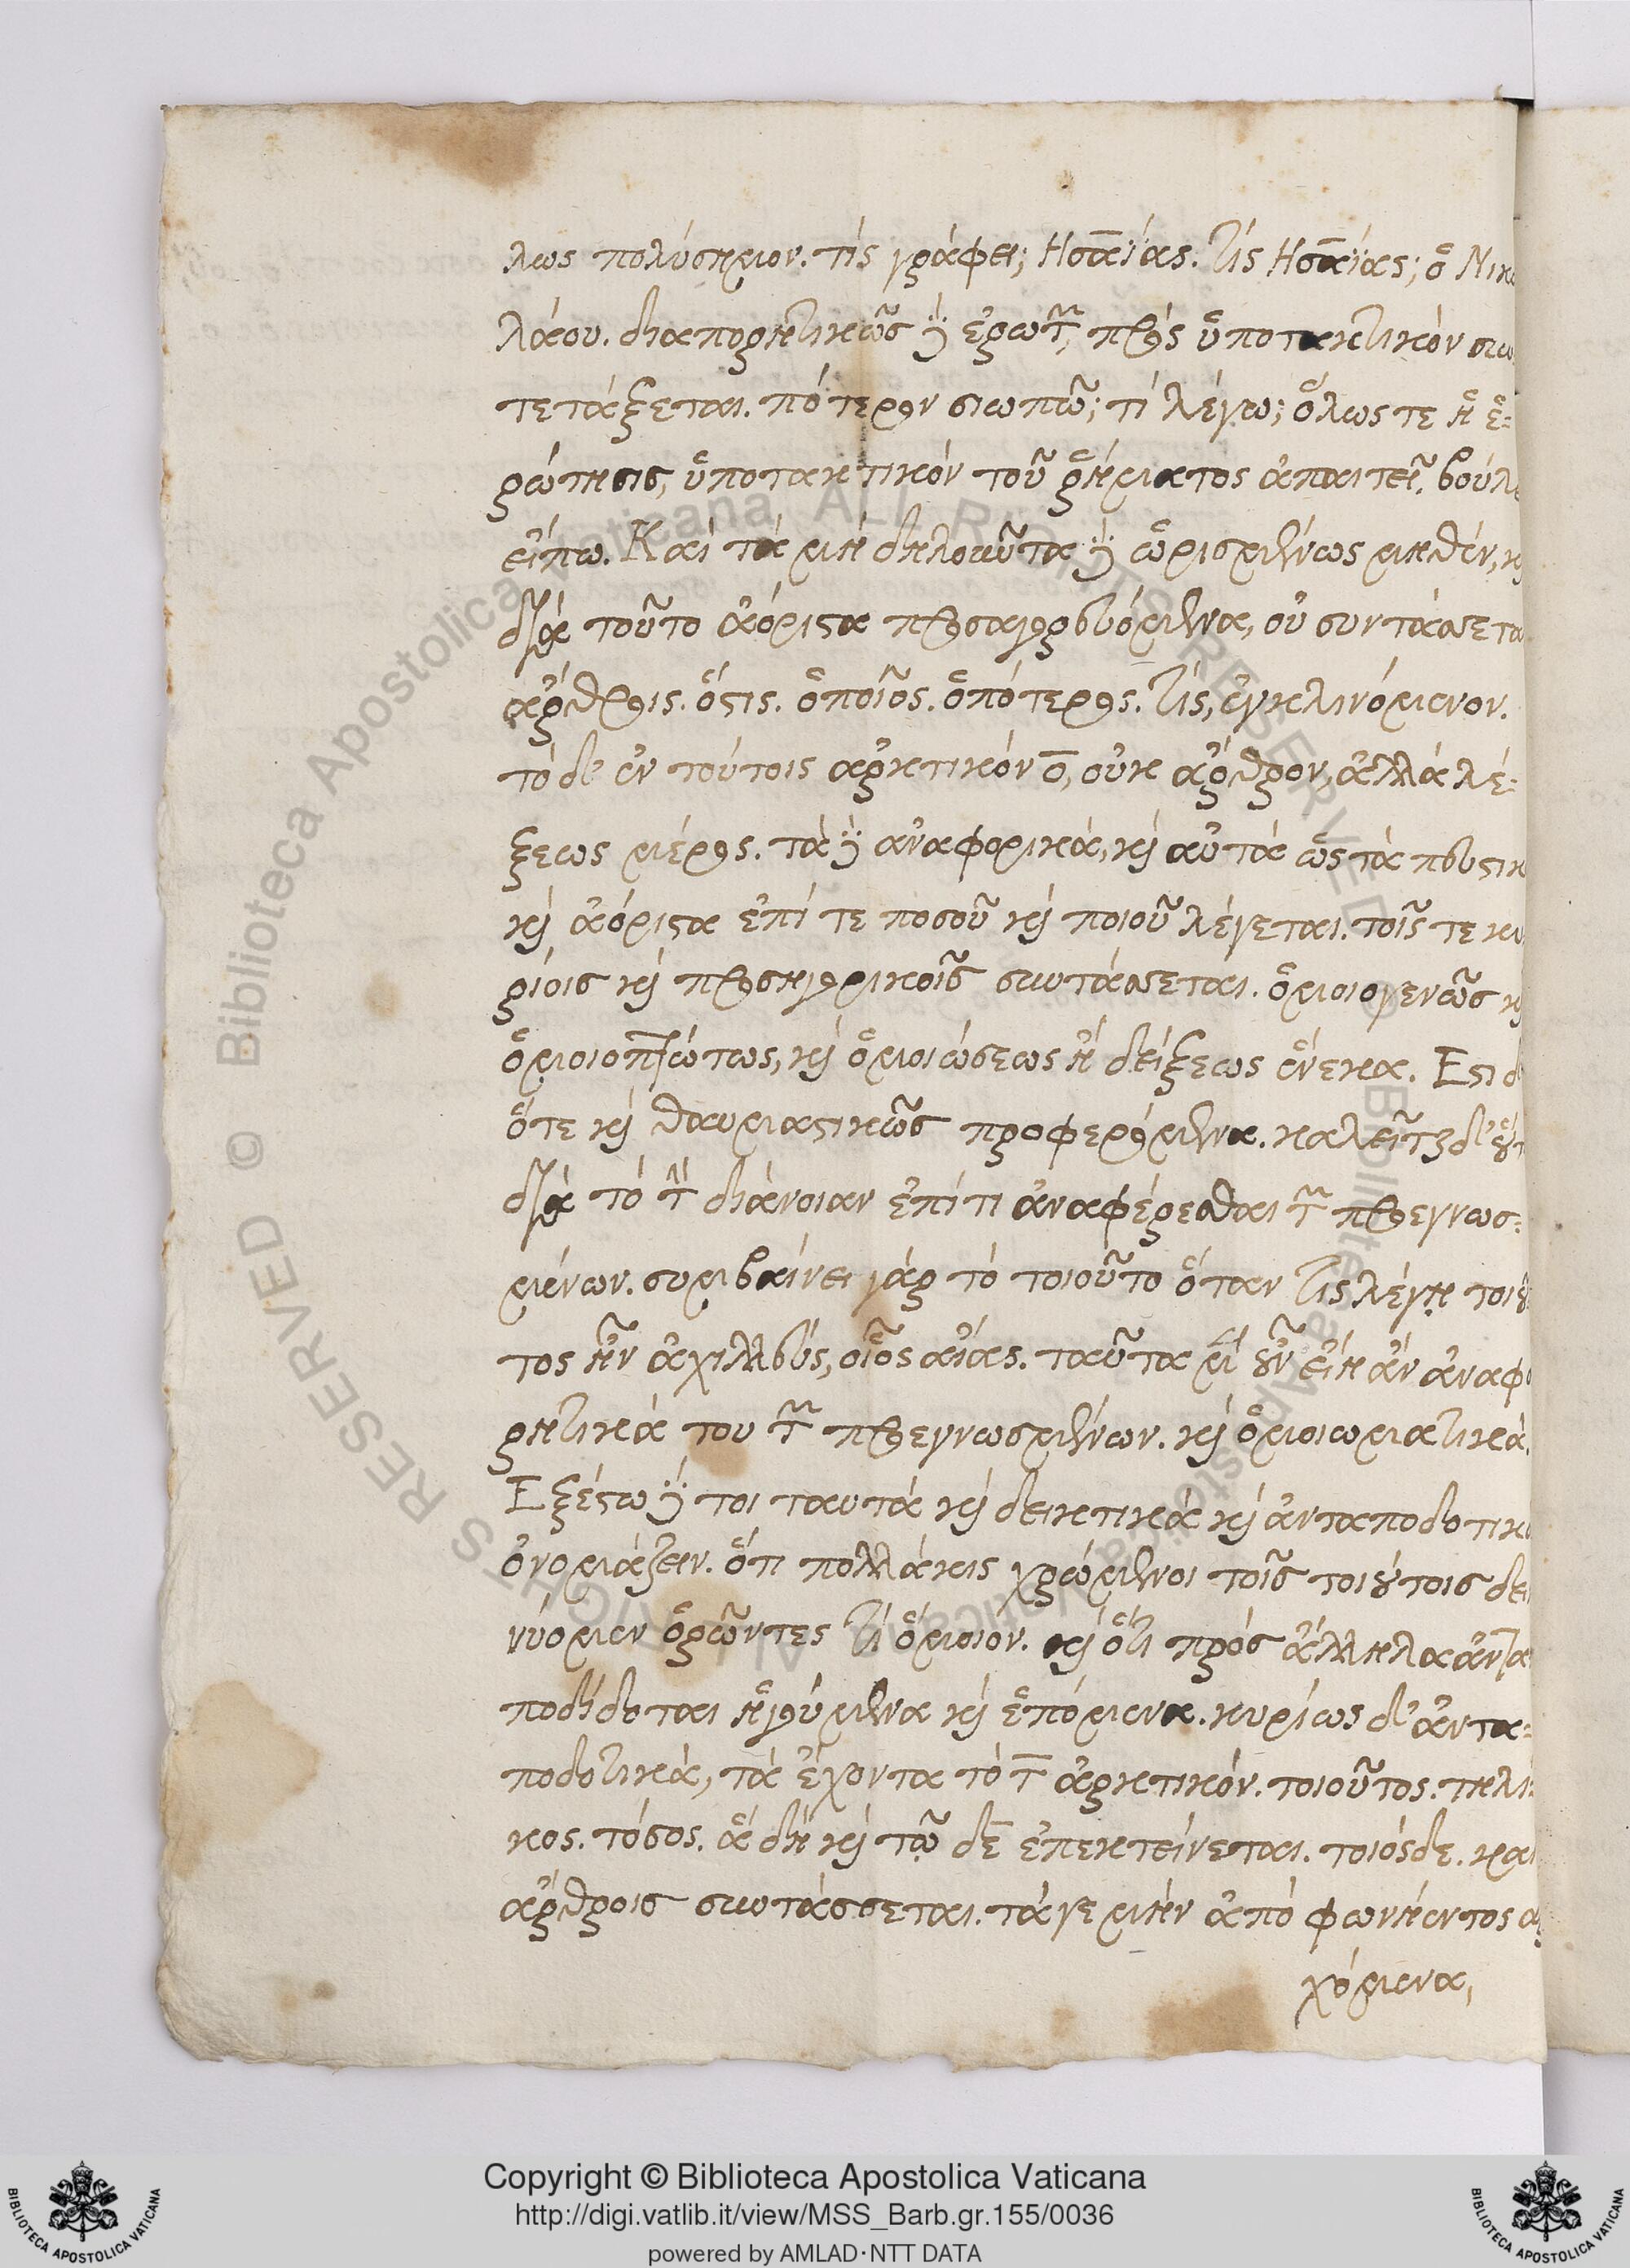 λως πολύσημον. τίς γράφει; Ησαΐας. τίς Ησαΐας; ὁ Νικο
λάου. διαπορητικῶς δὲ ἐρωτῶν, πρὸς ὑποτακτικόν συν
τετάξεται. πότερον σιωπῶ; τί λέγω; ὅλως τε ἡ ἐ-
ρώτησις, ὑποτακτικόν τοῦ ῥήματος ἀπαιτεῖ. βούλει
εἴπω. Καὶ τὰ μὴ δηλοῦντα δὲ ὡρισμένως μηθέν, καὶ
διὰ τοῦτο ἀόριστα προσαγορευόμενα, οὐ συντάσσεται
ἄρθροις. ὅστις. ὁποῖος. ὁπότερος. τίς, ἐγκλινόμενον.
τὸ δ' ἐν τούτοις ἀρκτικόν ο, οὐκ ἄρθρον, ἀλλὰ λέ-
ξεως μέρος. τὰ δὲ ἀναφορικά, καὶ αὐτὰ ὡς τὰ πευστικ
καὶ ἀόριστα ἐπί τε ποσοῦ καὶ ποιοῦ λέγεται. τοῖς τε κυ
ρίοις καὶ προσηγορικοῖς συντάσσεται. ὁμοιογενῶς καὶ
ὁμοιοπτώτως, καὶ ὁμοιώσεως ἢ δείξεως ἕνεκα. Εστι δ'
ὅτε καὶ θαυμαστικῶς προφερόμενα. καλεῖται δ' οὕτ
διὰ τὸ τὴν διάνοιαν ἐπί τι ἀναφέρεσθαι τῶν προεγνωσ-
μένων. συμβαίνει γάρ τὸ τοιοῦτο ὅταν τις λέγῃ τοιοῦ
τος ἦν ἀχιλλεύς, οἷος αἴας. ταῦτα μὲν οὖν εἴη ἂν ἀναφο
ρητικά του τῶν προεγνωσμένων. καὶ ὁμοιωματικά.
Εξέστω δέ τοι ταυτὰ καὶ δεικτικὰ καὶ ἀνταποδοτικὰ
ὀνομάζειν. ὅτι πολλάκις χρώμενοι τοῖς τοιούτοις δει
νύομεν ὁρῶντες τί ὅμοιον. καὶ ὅτι πρός ἄλληλα ἀντα
ποδίδοται ἡγούμενα καὶ ἑπόμενα. κυρίως δ' ἀντα-
ποδοτικά, τὰ ἔχοντα τὸ τ ἀρκτικόν. τοιοῦτος. τηλί-
κος. τόσος. ἃ δὴ καὶ τῷ δε ἐπεκτείνεται. τοιόσδε. καὶ
ἄρθροις συντάσσεται. τάγε μὴν ἀπὸ φωνήεντος ἀρ
χόμενα,
Copyright © Biblioteca Apostolica Vaticana
http://digi.vatlib.it/view/MSS_Barb.gr.155/0036
powered by AMLAD·NTT DATA